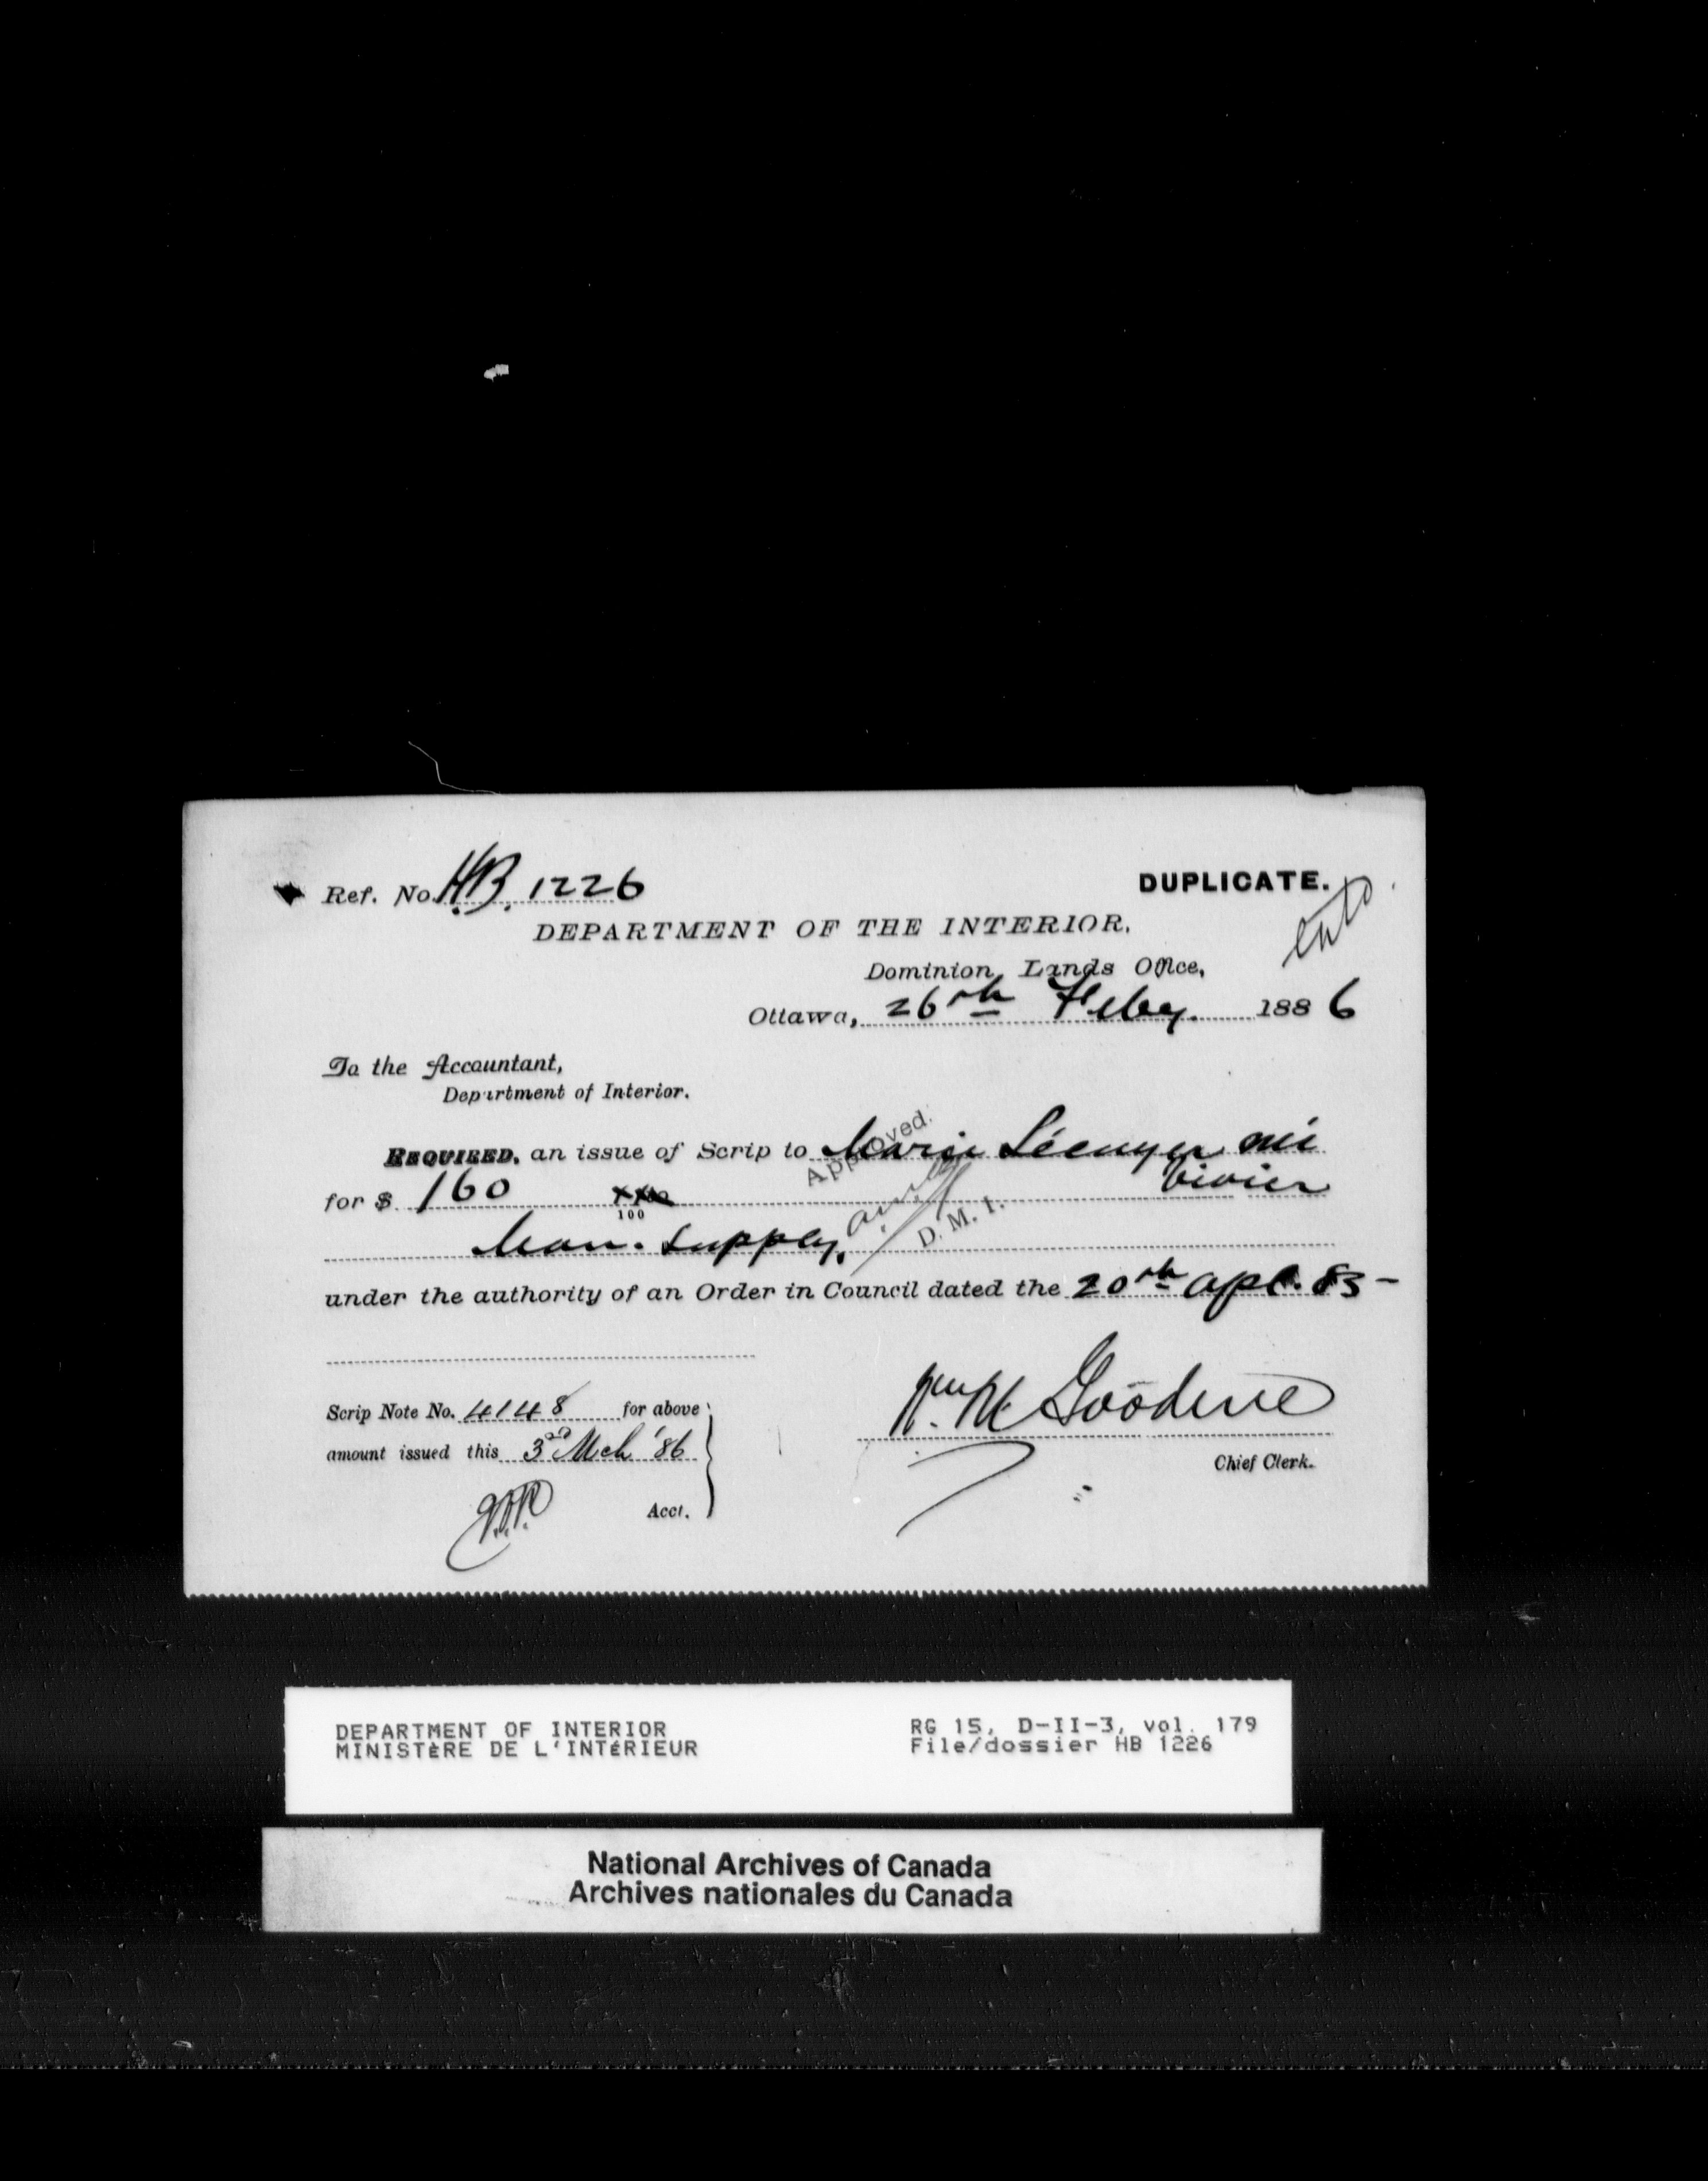 Ref. No. H.B. 1226
DUPLICATE.
entd
DEPARTMENT OF THE INTERIOR.
Dominion Lands Office,
Ottawa, 26th Feby. 1886
To the Accountant,
Department of Interior.
REQUIRED, an issue of Scrip to Marie née
Vivier
for $ 160 xx 100
Approved.
D. M. I.
Man. Supply.
under the authority of an Order in Council dated the 20th Apl. 85 -
Scrip Note No. 4148 for above
amount issued this 3rd Mch '86
Acct.
Wm M Goodeve
Chief Clerk.
DEPARTMENT OF INTERIOR
MINISTÈRE DE L'INTÉRIEUR
RG 15, D-II-3, vol. 179
File/dossier HB 1226
National Archives of Canada
Archives nationales du Canada